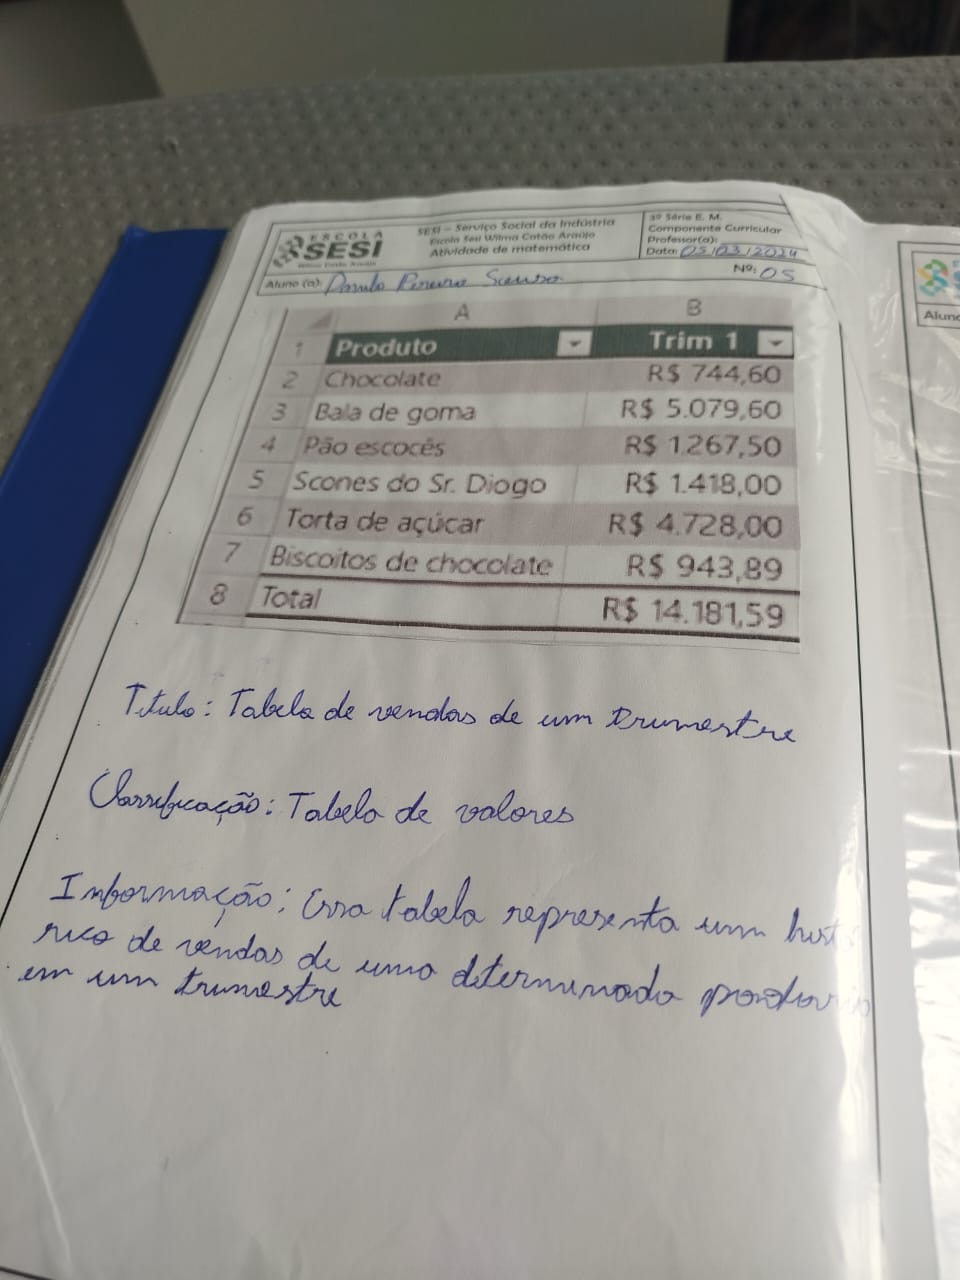 ESCOLA
SESI
SESI - Serviço Social da Indústria
Escola Sesi Wilma Catão Araújo
Atividade de matemática
3ª Série E. M.
Componente Curricular
Professor(a):
Data: 05/03/2024
Aluno (a): Nº: 05
A B
1 Produto Trim 1
2 Chocolate R$ 744,60
3 Bala de goma R$ 5.079,60
4 Pão escocês R$ 1.267,50
5 Scones do Sr. Diogo R$ 1.418,00
6 Torta de açúcar R$ 4.728,00
7 Biscoitos de chocolate R$ 943,89
8 Total R$ 14.181,59
Titulo: Tabela de vendas de um trimestre
Classificação: Tabela de valores
Informação: Essa tabela representa um histó
rico de vendas de uma determinada padaria
em um trimestre
Aluno